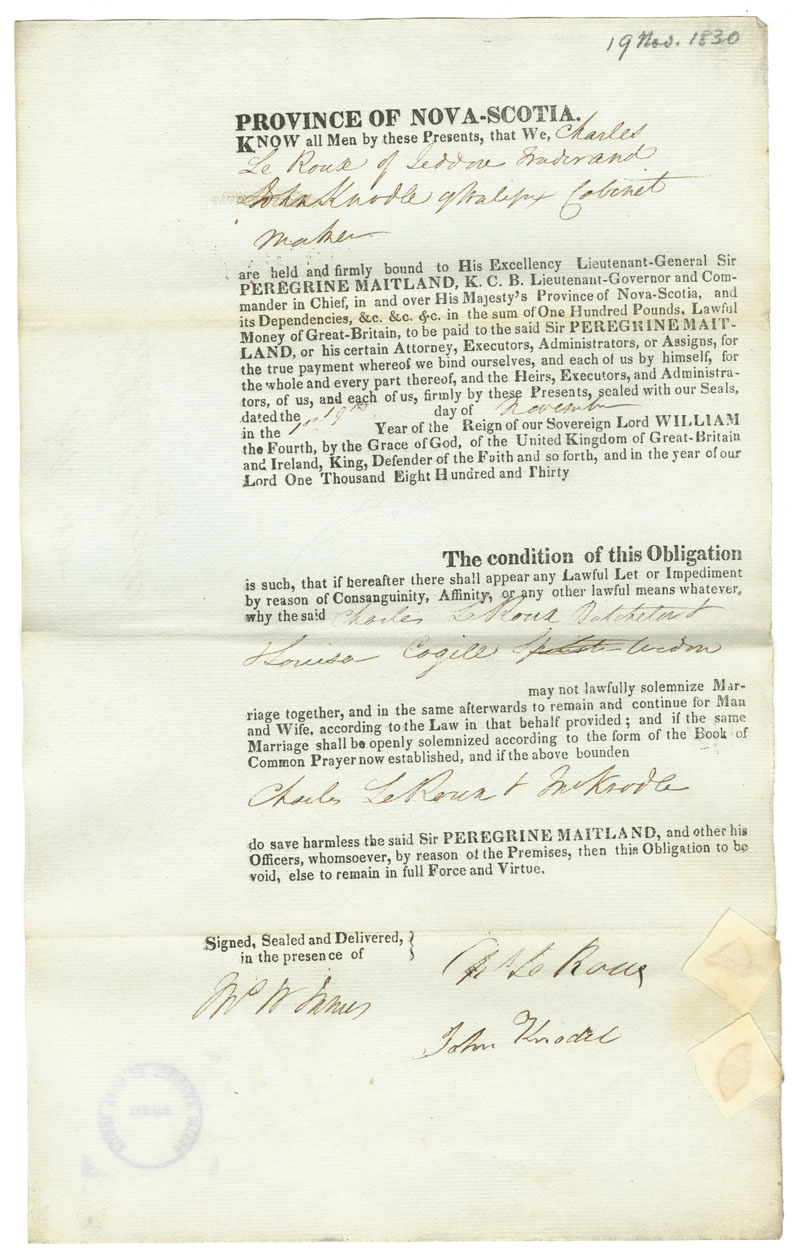 19 Nov. 1830
PROVINCE OF NOVA-SCOTIA.
KNOW all Men by these Presents, that We, Charles
Le Roux of Jeddore Trader and
John Knodle of Halifax Cabinet
Maker
are held and firmly bound to His Excellency Lieutenant-General Sir
PEREGRINE MAITLAND, K. C. B. Lieutenant-Governor and Com-
mander in Chief, in and over His Majesty's Province of Nova-Scotia, and
its Dependencies, &c. &c. &c. in the sum of One Hundred Pounds, Lawful
Money of Great-Britain, to be paid to the said Sir PEREGRINE MAIT-
LAND, or his certain Attorney, Executors, Administrators, or Assigns, for
the true payment whereof we bind ourselves, and each of us by himself, for
the whole and every part thereof, and the Heirs, Executors, and Administra-
tors, of us, and each of us, firmly by these Presents, sealed with our Seals,
dated the 19th day of November
in the Year of the Reign of our Sovereign Lord WILLIAM
the Fourth, by the Grace of God, of the United Kingdom of Great-Britain
and Ireland, King, Defender of the Faith and so forth, and in the year of our
Lord One Thousand Eight Hundred and Thirty
The condition of this Obligation
is such, that if hereafter there shall appear any Lawful Let or Impediment
by reason of Consanguinity, Affinity, or any other lawful means whatever,
why the said Charles Le Roux Batchelor &
Louisa Cogill Widow
may not lawfully solemnize Mar-
riage together, and in the same afterwards to remain and continue for Man
and Wife, according to the Law in that behalf provided; and if the same
Marriage shall be openly solemnized according to the form of the Book of
Common Prayer now established, and if the above bounden
Charles Le Roux & Jno Knodle
do save harmless the said Sir PEREGRINE MAITLAND, and other his
Officers, whomsoever, by reason of the Premises, then this Obligation to be
void, else to remain in full Force and Virtue.
Signed, Sealed and Delivered,
in the presence of
Chs Le Roux
John Knodel